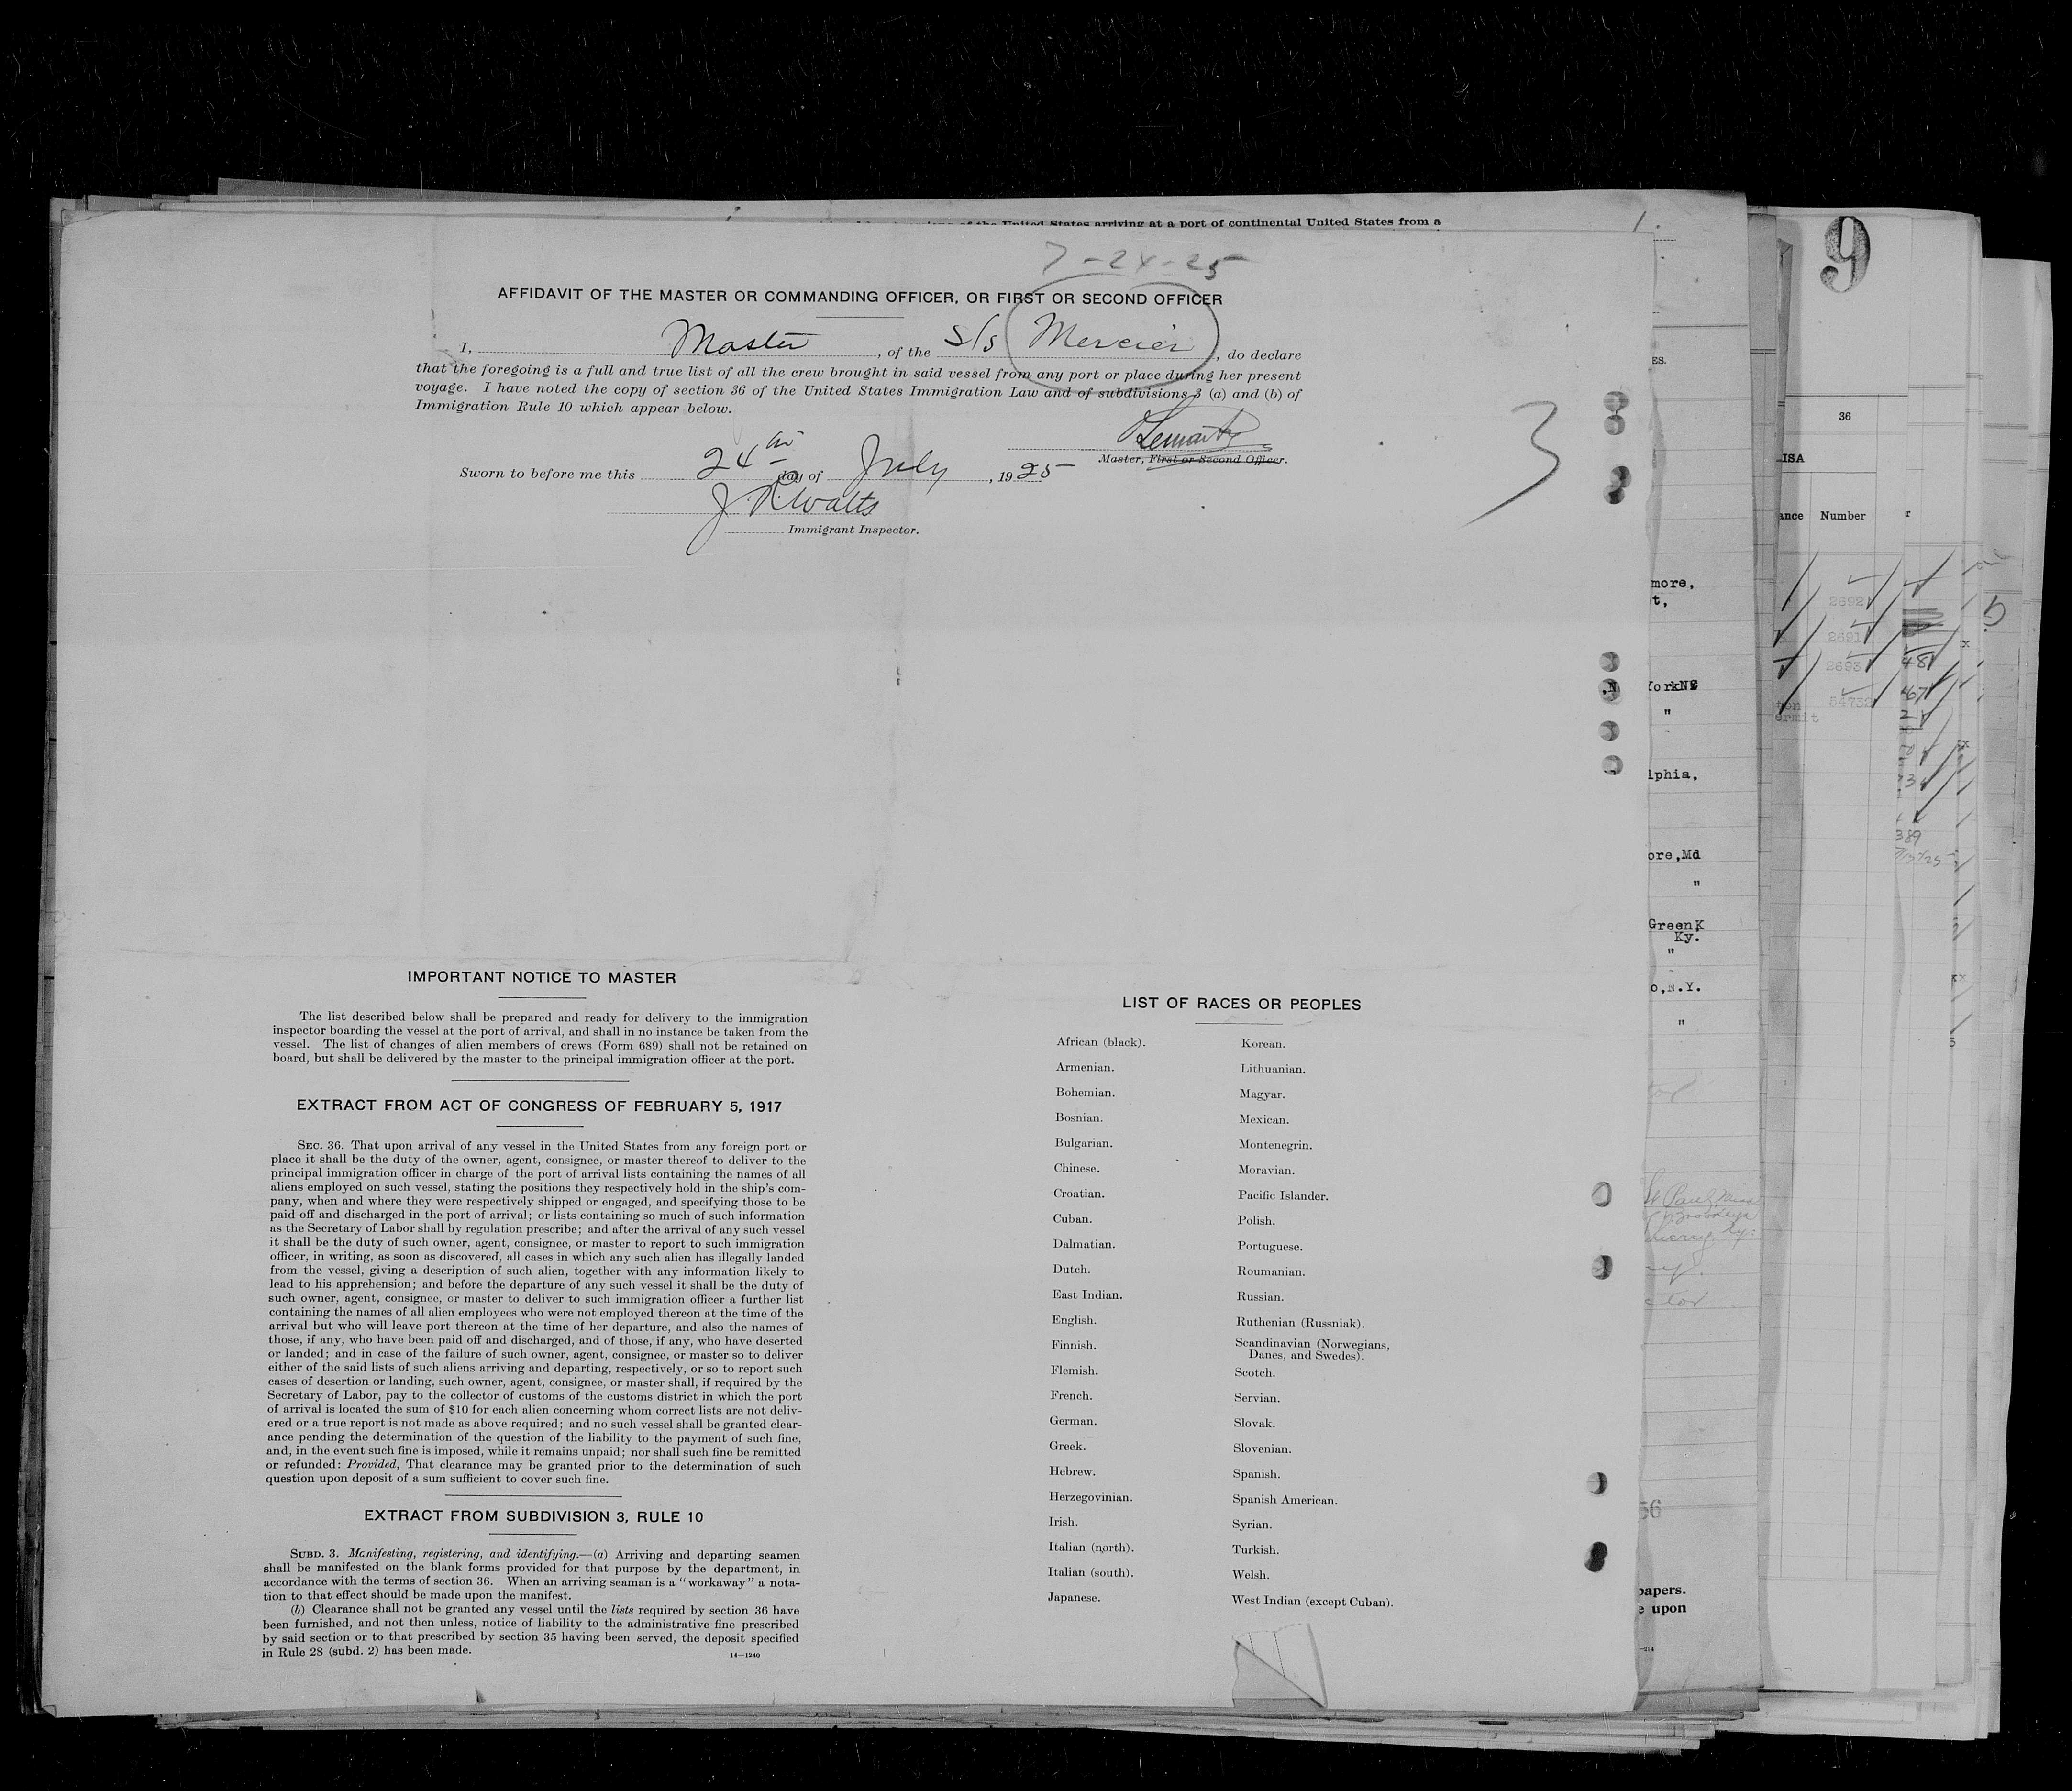 of the United States arriving at a port of continental United States from a
1.
9
7-24-25
AFFIDAVIT OF THE MASTER OR COMMANDING OFFICER, OR FIRST OR SECOND OFFICER
I, Master, of the S/S Mercier, do declare
that the foregoing is a full and true list of all the crew brought in said vessel from any port or place during her present
voyage. I have noted the copy of section 36 of the United States Immigration Law and of subdivisions 3 (a) and (b) of
Immigration Rule 10 which appear below.
Master, First or Second Officer.
3
Sworn to before me this 24th day of July, 1925
J R Watts
Immigrant Inspector.
IMPORTANT NOTICE TO MASTER
The list described below shall be prepared and ready for delivery to the immigration
inspector boarding the vessel at the port of arrival, and shall in no instance be taken from the
vessel. The list of changes of alien members of crews (Form 689) shall not be retained on
board, but shall be delivered by the master to the principal immigration officer at the port.
EXTRACT FROM ACT OF CONGRESS OF FEBRUARY 5, 1917
SEC. 36. That upon arrival of any vessel in the United States from any foreign port or
place it shall be the duty of the owner, agent, consignee, or master thereof to deliver to the
principal immigration officer in charge of the port of arrival lists containing the names of all
aliens employed on such vessel, stating the positions they respectively hold in the ship's com-
pany, when and where they were respectively shipped or engaged, and specifying those to be
paid off and discharged in the port of arrival; or lists containing so much of such information
as the Secretary of Labor shall by regulation prescribe; and after the arrival of any such vessel
it shall be the duty of such owner, agent, consignee, or master to report to such immigration
officer, in writing, as soon as discovered, all cases in which any such alien has illegally landed
from the vessel, giving a description of such alien, together with any information likely to
lead to his apprehension; and before the departure of any such vessel it shall be the duty of
such owner, agent, consignee, or master to deliver to such immigration officer a further list
containing the names of all alien employees who were not employed thereon at the time of the
arrival but who will leave port thereon at the time of her departure, and also the names of
those, if any, who have been paid off and discharged, and of those, if any, who have deserted
or landed; and in case of the failure of such owner, agent, consignee, or master so to deliver
either of the said lists of such aliens arriving and departing, respectively, or so to report such
cases of desertion or landing, such owner, agent, consignee, or master shall, if required by the
Secretary of Labor, pay to the collector of customs of the customs district in which the port
of arrival is located the sum of $10 for each alien concerning whom correct lists are not deliv-
ered or a true report is not made as above required; and no such vessel shall be granted clear-
ance pending the determination of the question of the liability to the payment of such fine,
and, in the event such fine is imposed, while it remains unpaid; nor shall such fine be remitted
or refunded: Provided, That clearance may be granted prior to the determination of such
question upon deposit of a sum sufficient to cover such fine.
EXTRACT FROM SUBDIVISION 3, RULE 10
SUBD. 3. Manifesting, registering, and identifying.—(a) Arriving and departing seamen
shall be manifested on the blank forms provided for that purpose by the department, in
accordance with the terms of section 36. When an arriving seaman is a "workaway" a nota-
tion to that effect should be made upon the manifest.
(b) Clearance shall not be granted any vessel until the lists required by section 36 have
been furnished, and not then unless, notice of liability to the administrative fine prescribed
by said section or to that prescribed by section 35 having been served, the deposit specified
in Rule 28 (subd. 2) has been made.
14—1240
LIST OF RACES OR PEOPLES
African (black).
Armenian.
Bohemian.
Bosnian.
Bulgarian.
Chinese.
Croatian.
Cuban.
Dalmatian.
Dutch.
East Indian.
English.
Finnish.
Flemish.
French.
German.
Greek.
Hebrew.
Herzegovinian.
Irish.
Italian (north).
Italian (south).
Japanese.
Korean.
Lithuanian.
Magyar.
Mexican.
Montenegrin.
Moravian.
Pacific Islander.
Polish.
Portuguese.
Roumanian.
Russian.
Ruthenian (Russniak).
Scandinavian (Norwegians,
Danes, and Swedes).
Scotch.
Servian.
Slovak.
Slovenian.
Spanish.
Spanish American.
Syrian.
Turkish.
Welsh.
West Indian (except Cuban).
ES.
more,
t,
"
lphia,
ore,Md
"
Green
Ky.
"
o,N.Y.
"
papers.
e upon
36
ISA
ance Number
2692
2691
2693
54732